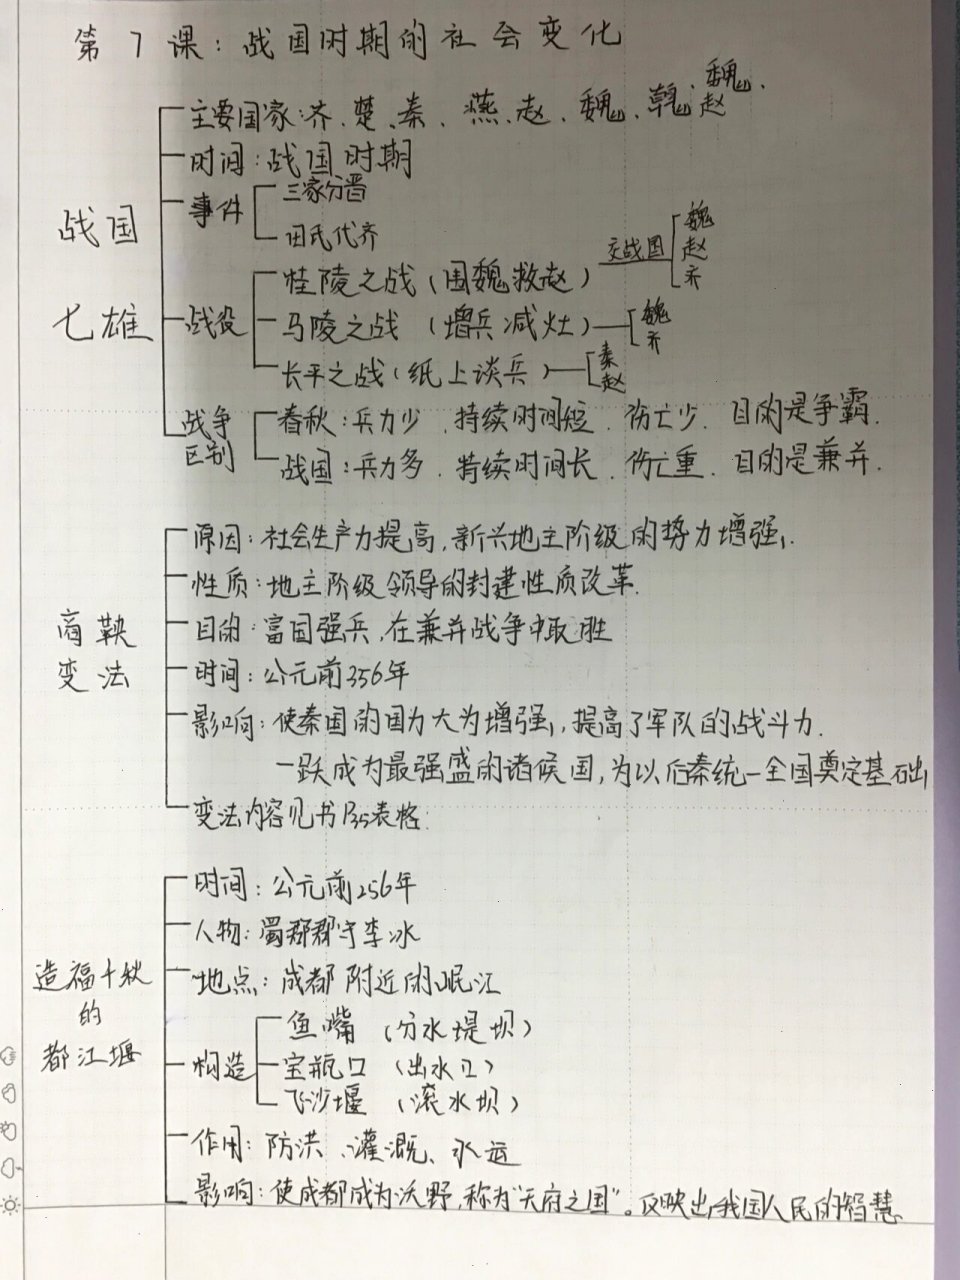 第7课:战国时期的社会变化
主要国家:齐、楚、秦、燕、赵、魏、韩、魏、赵
时间:战国时期
事件
三家分晋
田氏代齐
战国
七雄
战役
桂陵之战(围魏救赵)
交战国
魏
赵
齐
马陵之战(增兵减灶)
魏
齐
长平之战(纸上谈兵)
秦
赵
战争
区别
春秋:兵力少、持续时间短、伤亡少、目的是争霸.
战国:兵力多、持续时间长、伤亡重、目的是兼并.
商鞅
变法
原因:社会生产力提高,新兴地主阶级的势力增强,.
性质:地主阶级领导的封建性质改革.
目的:富国强兵,在兼并战争中取胜
时间:公元前356年
影响:使秦国的国力大为增强,提高了军队的战斗力.
一跃成为最强盛的诸候国,为以后秦统一全国奠定基础,
变法内容见书P35表格.
造福千秋
的
都江堰
时间:公元前256年
人物:蜀郡郡守李冰
地点:成都附近的岷江
构造
鱼嘴(分水堤坝)
宝瓶口(出水口)
飞沙堰(滚水坝)
作用:防洪、灌溉、水运
影响:使成都成为沃野,称为“天府之国”。反映出我国人民的智慧